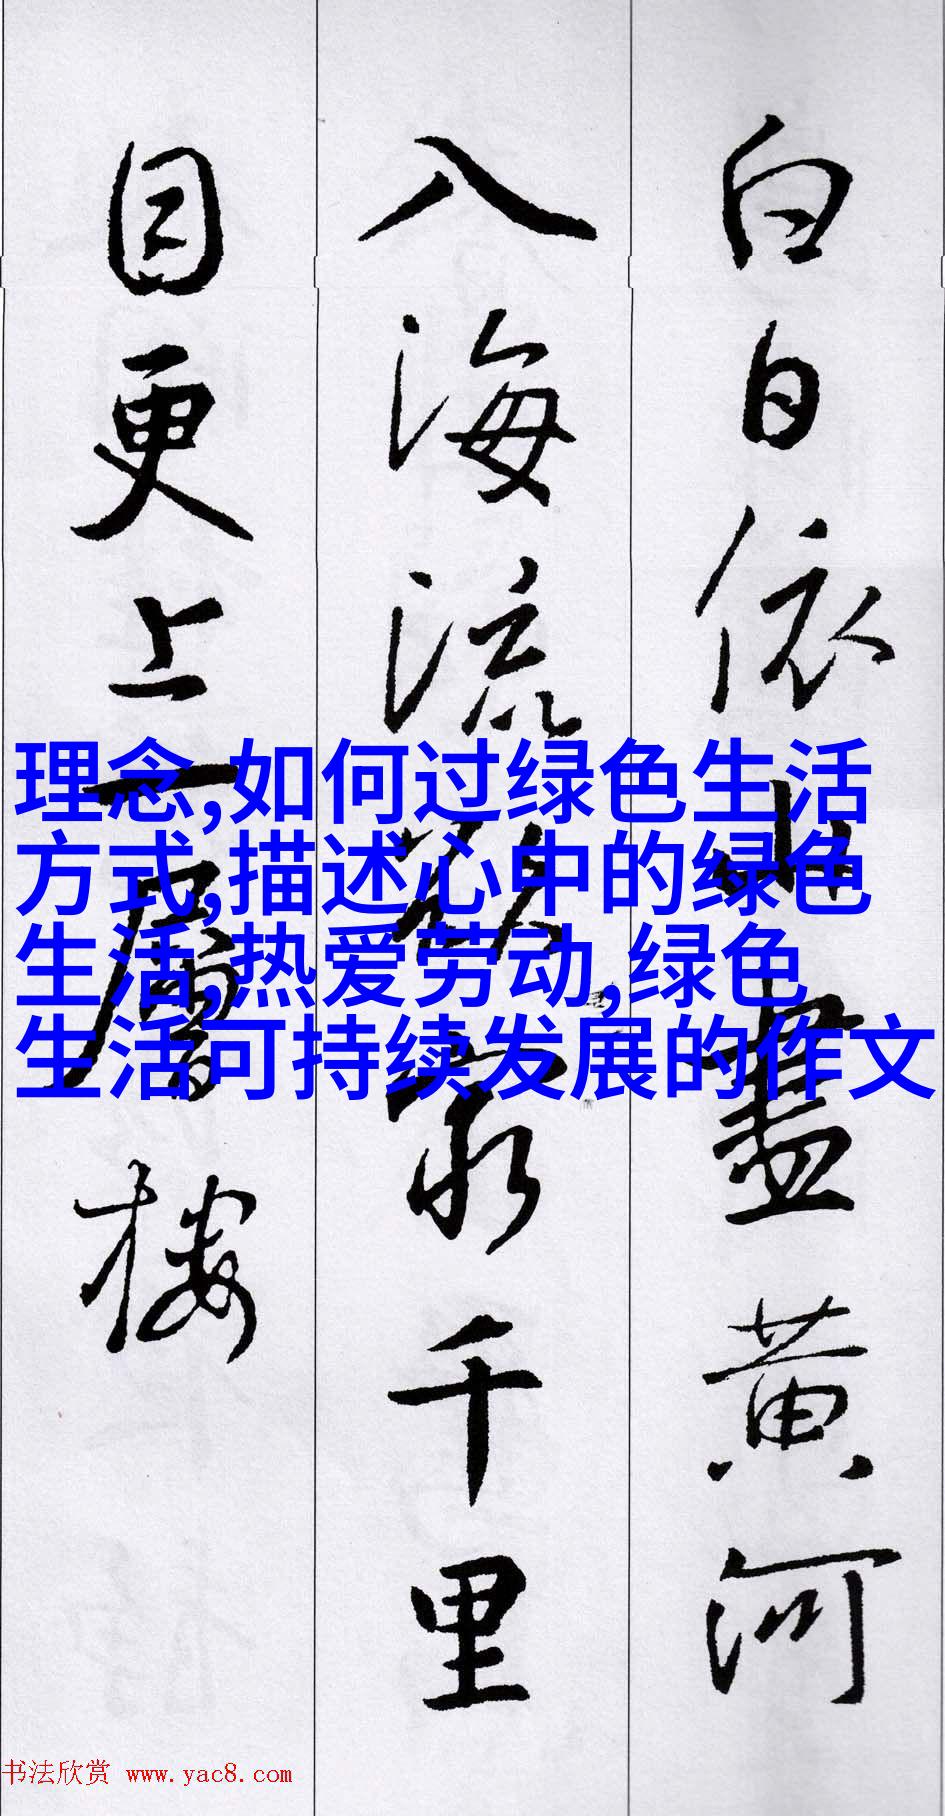 白日依山盡黃河
入海流欲窮千里
目更上一層樓
理念,如何过绿色生活
方式,描述心中的绿色
生活,热爱劳动,绿色
生活可持续发展的作文
书法欣赏 www.yac8.com